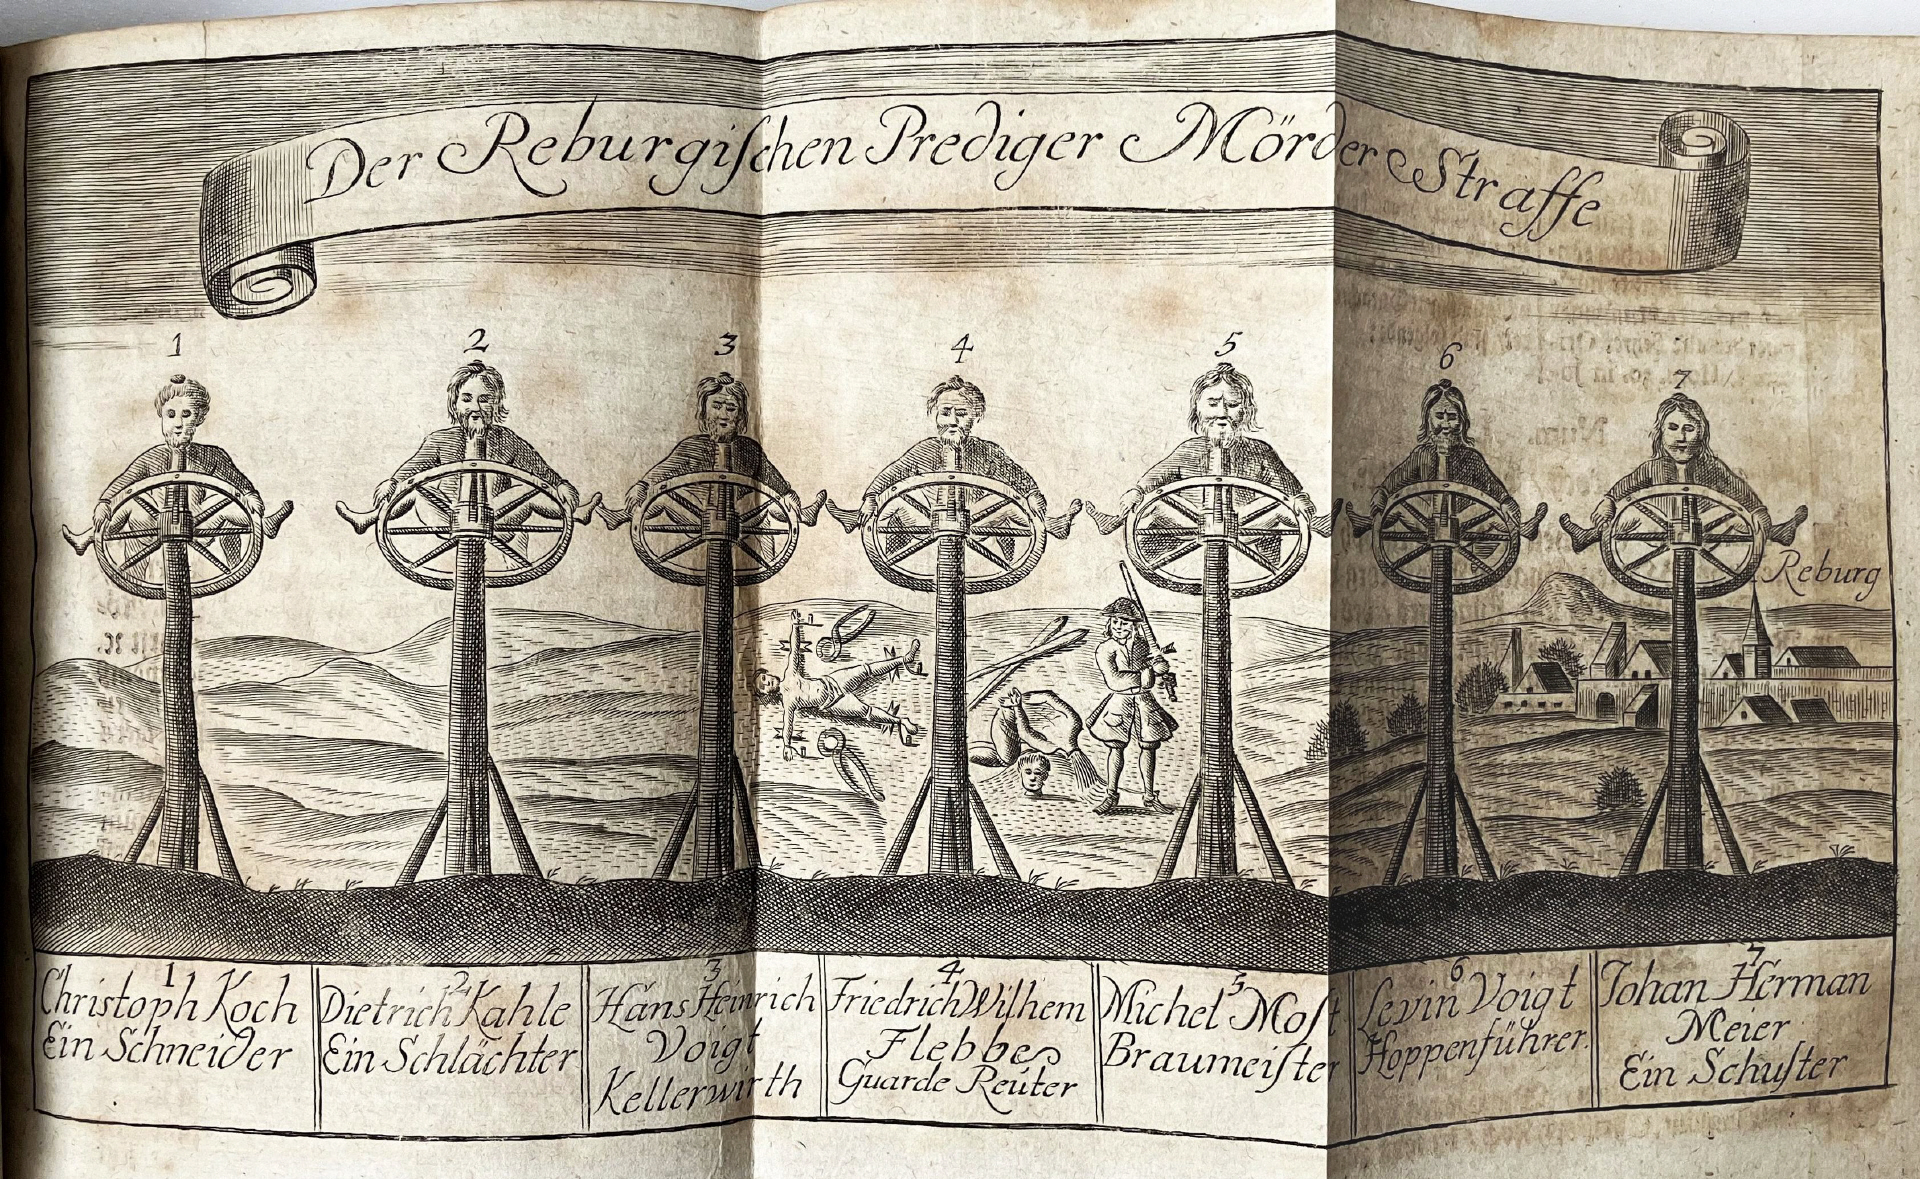 Der Reburgiſchen Prediger Mörder Straffe
1
2
3
4
5
6
7
Reburg
1
Chriſtoph Koch
Ein Schneider
2
Dietrich Kahle
Ein Schlächter
3
Hans Heinrich
Voigt
Kellerwirth
4
Friedrich Wilhem
Flebbe
Guarde Reüter
5
Michel Moſt
Braumeiſter
6
Levin Voigt
Hoppenführer.
7
Johan Herman
Meier
Ein Schuſter